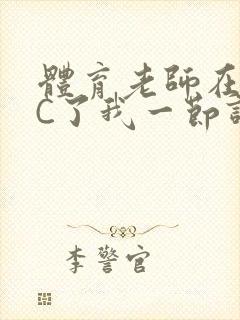 體育老師在
C了我一節
李警官